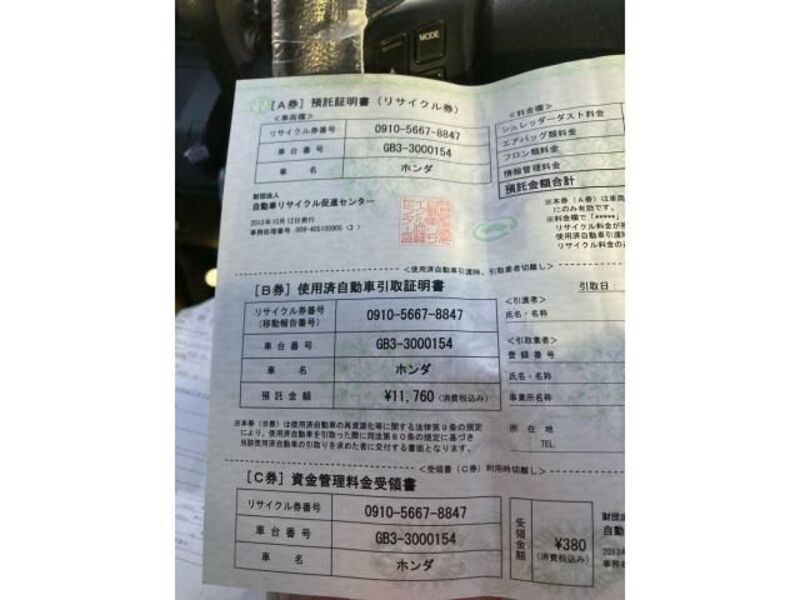 MODE
[A券] 預託証明書(リサイクル券)
<車両欄>
リサイクル券番号 0910-5667-8847
車台番号 GB3-3000154
車名 ホンダ
<料金欄>
シュレッダーダスト料金
エアバッグ類料金
フロン類料金
情報管理料金
預託金額合計
財団法人
自動車リサイクル促進センター
2012年10月12日発行
※本券(A券)は車両
にのみ有効です。
※料金欄で「*****」
リサイクル料金が
使用済自動車引渡時
リサイクル料金の
<使用済自動車引渡時、引取業者切離し>
[B券] 使用済自動車引取証明書
引取日:
リサイクル券番号
(移動報告番号) 0910-5667-8847
車台番号 GB3-3000154
車名 ホンダ
預託金額 ¥11,760(消費税込み)
<引渡者>
氏名・名称
<引取業者>
登録番号
氏名・名称
事業所名称
所在地
TEL.
※本券(B券)は使用済自動車の再資源化等に関する法律第9条の規定
により、使用済自動車を引取った際に同法第80条の規定に基づき
当該使用済自動車の引取りを求めた者に交付する書面となります。
<受領書(C券)利用時切離し>
[C券] 資金管理料金受領書
リサイクル券番号 0910-5667-8847
車台番号 GB3-3000154
車名 ホンダ
受領金額 ¥380
(消費税込み)
財団法
自動
2012
事務処